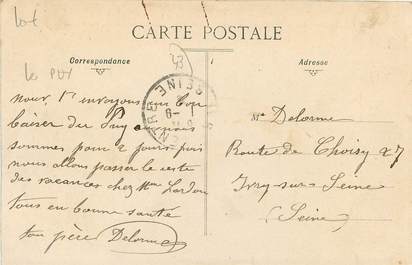 Lot
CARTE POSTALE
Correspondance
Adresse
43
Le PUY
SEINE
nous t'envoyons un bon
baiser du Puy où nous
sommes pour 2 jours puis
nous allons passer le reste
des vacances chez Mme
tous en bonne santé
ton père Delorme
Mr Delorme
Route de Choisy 27
Ivry-sur-Seine
(Seine)